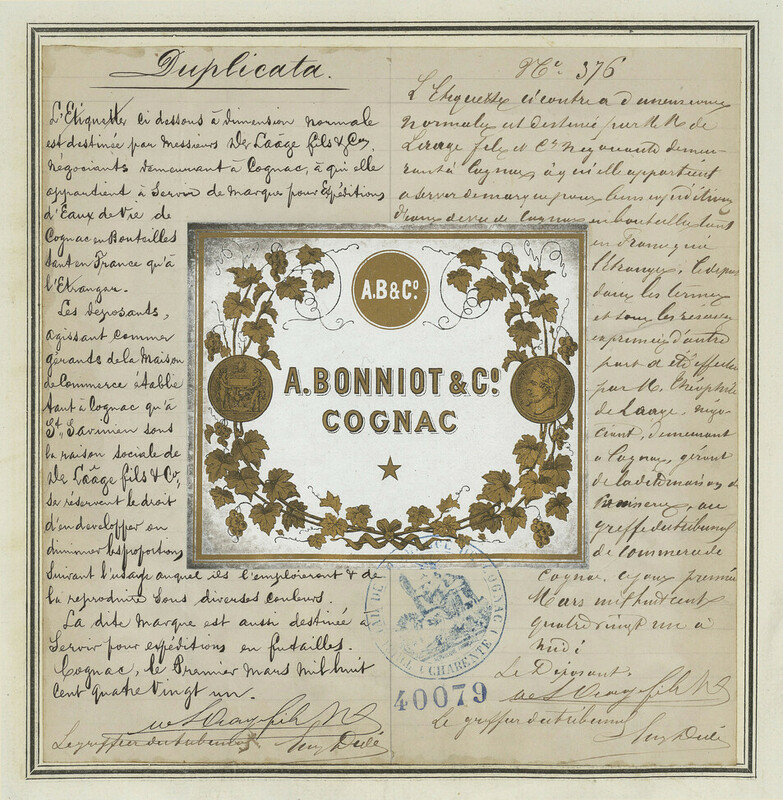 Duplicata.
L'Etiquette ci dessous à dimension normale
est destinée par Messieurs De Laâge fils & Co,
négociants demeurant à Cognac, à qui elle
appartient à Servir de marque pour Expéditions
d'Eaux de Vie de
Cognac en Bouteilles
tant en France qu'à
l'Etranger.
Les déposants,
agissant comme
gérants de la Maison
de Commerce établie
tant à Cognac qu'à
St. Savinien sous
la raison sociale de
De Laâge fils & Co,
se réservent le droit
d'en developper ou
diminuer les proportions
suivant l'usage auquel ils l'emploieront & de
la reproduire sous diverses couleurs.
La dite Marque est aussi destinée à
Servir pour expéditions en futailles.
Cognac, le Premier Mars Mil huit
cent quatre Vingt un.
Le greffier du tribunal
No. 376
L'Etiquette ci contre a dimensions
normales est destinée par MM de
Laage fils et Cie Négociants demeu-
rant à Cognac à qui elle appartient
a servir de marque pour leurs expéditions
d'eaux de vie de Cognac en bouteilles tant
en France qu'à
l'étranger,
dans les termes
et sous les réserves
exprimés d'autre
part a été effectué
par M. Théophile
de Laage, négo-
ciant, demeurant
a Cognac, gérant
de la dite maison de
commerce, au
greffe du tribunal
de commerce de
Cognac, ce jour premier
Mars mil huit cent
quatre vingt un à
midi
Le Déposant.
Le greffier du tribunal
A.B & Co.
A. BONNIOT & Co.
COGNAC
COGNAC
CHARENTE
40079